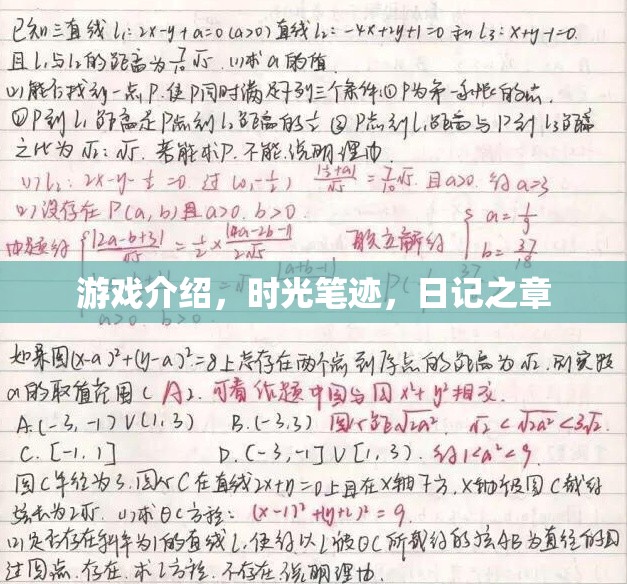 已知三直线l₁: 2x-y+a=0(a>0)直线l₂: -4x+2y+1=0和l₃: x+y-1=0.
且l₁与l₂的距离为7/10√5. (1)求a的值
(2)能否找到一点P.使P同时满足下列三个条件①P为第一象限的点.
②P到l₁的距离是P点到l₂距离的½ ③P点到l₁距离与P到l₃的距离
之比为√2:√5. 若能求P.不能,说明理由.
(1) l₂: 2x-y-½=0 过(0,-½) |½+a|/√5=7/10√5. 且a>0. 得a=3
(2)设存在P(a,b)且a>0.b>0
由题得 |2a-b+3|/√5=½×|4a-2b-1|/2√5 联立解得 a=1/9
b=37/18
|a+b-1|
游戏介绍，时光笔迹，日记之章
a>0. b>0
如果圆(x-a)²+(y-a)²=8上总存在两个点到原点的距离为√2.则实数
a的取值范围( A ). 可看作题中圆与圆x²+y²相交.
A.(-3,-1)∪(1,3) B.(-3,3) 圆心距√2a² √2<√2a²<3√2.
C.[-1,1] D.(-3,-1]∪[1,3). 得1<a²<9.
圆C半径为3.圆心C在直线2x+y=0上且在x轴下方,x轴被圆C截得
弦长为2√5. (1)求⊙C方程: (x-1)²+(y+2)²=9.
(2)是否存在斜率为1的直线l.使得以l被⊙C所截得的弦AB为直径的圆
过原点.存在.求l方程.不存在.说明理由.